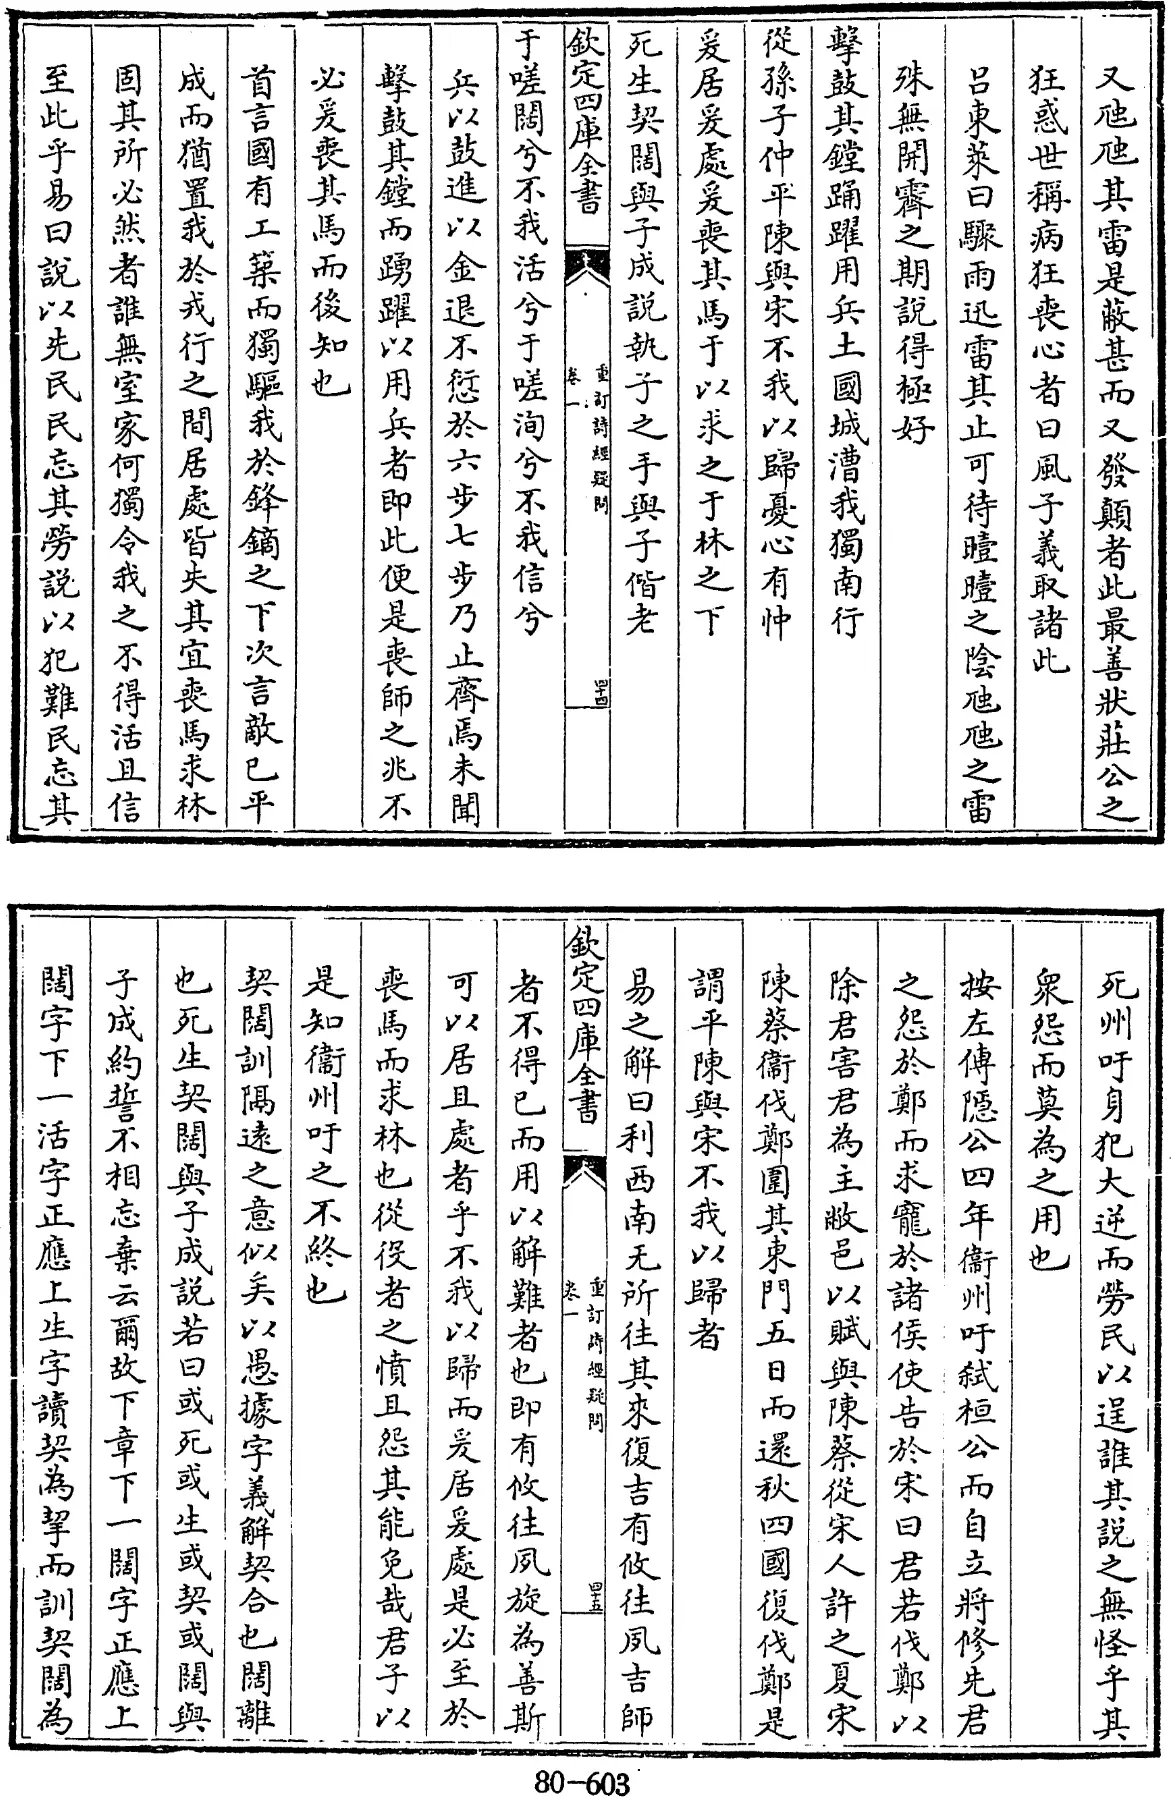 又虺虺其雷是蔽甚而又發顛者此最善狀莊公之
狂惑世稱病狂喪心者曰風子義取諸此
呂東萊曰驟雨迅雷其止可待曀曀之陰虺虺之雷
殊無開霽之期說得極好
擊鼓其鏜踊躍用兵土國城漕我獨南行
從孫子仲平陳與宋不我以歸憂心有忡
爰居爰處爰喪其馬于以求之于林之下
死生契闊與子成說執子之手與子偕老
欽定四庫全書
重訂詩經疑問
卷一
四十四
于嗟闊兮不我活兮于嗟洵兮不我信兮
兵以鼓進以金退不愆於六步七步乃止齊焉未聞
擊鼓其鏜而踴躍以用兵者即此便是喪師之兆不
必爰喪其馬而後知也
首言國有工築而獨驅我於鋒鏑之下次言敵已平
成而猶置我於戎行之間居處皆失其宜喪馬求林
固其所必然者誰無室家何獨令我之不得活且信
至此乎易曰說以先民民忘其勞說以犯難民忘其
死州吁身犯大逆而勞民以逞誰其說之無怪乎其
眾怨而莫為之用也
按左傳隱公四年衞州吁弒桓公而自立將修先君
之怨於鄭而求寵於諸侯使告於宋曰君若伐鄭以
除君害君為主敝邑以賦與陳蔡從宋人許之夏宋
陳蔡衞伐鄭圍其東門五日而還秋四國復伐鄭是
謂平陳與宋不我以歸者
易之解曰利西南无所往其來復吉有攸往夙吉師
欽定四庫全書
重訂詩經疑問
卷一
四十五
者不得已而用以解難者也即有攸往夙旋為善斯
可以居且處者乎不我以歸而爰居爰處是必至於
喪馬而求林也從役者之憤且怨其能免哉君子以
是知衞州吁之不終也
契闊訓隔遠之意似矣以愚據字義解契合也闊離
也死生契闊與子成說若曰或死或生或契或闊與
子成約誓不相忘棄云爾故下章下一闊字正應上
闊字下一活字正應上生字讀契為挈而訓契闊為
80-603